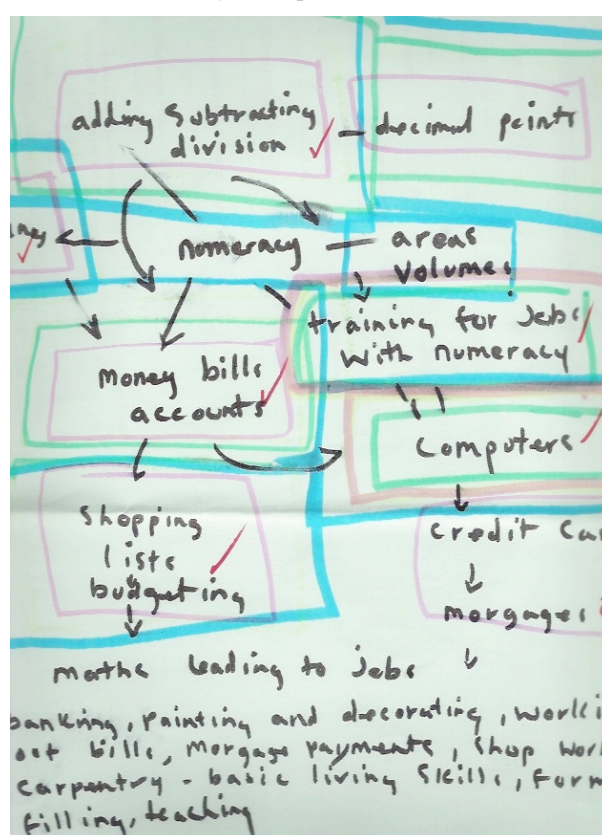 adding subtracting
division
decimal points
numeracy
areas
volumes
training for Jobs
with numeracy
Money bills
accounts
Computers
Shopping
lists
budgeting
credit Car
morgages
maths leading to jobs
banking, painting and decorating, worki
out bills, morgage payments, shop wor
carpentry - basic living skills, form
filling, teaching